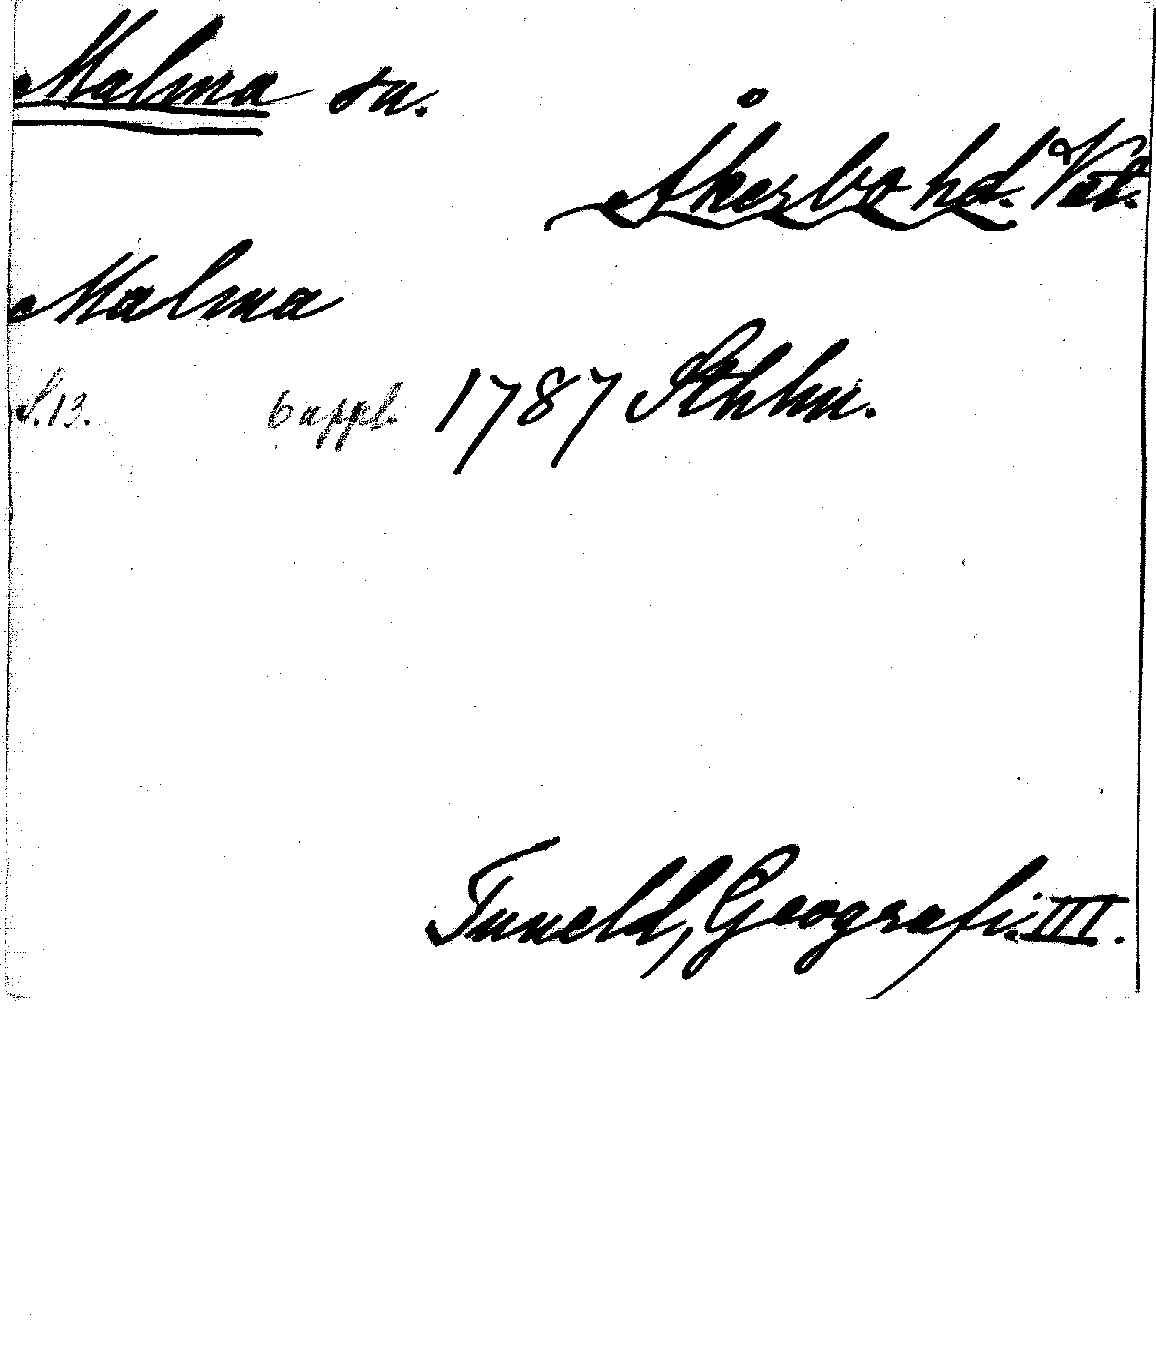 Malma sn.
Åkerbo hd. Vstl.
Malma
S. 13. 6 uppl. 1787 Sthlm.
Tuneld, Geografi. III.